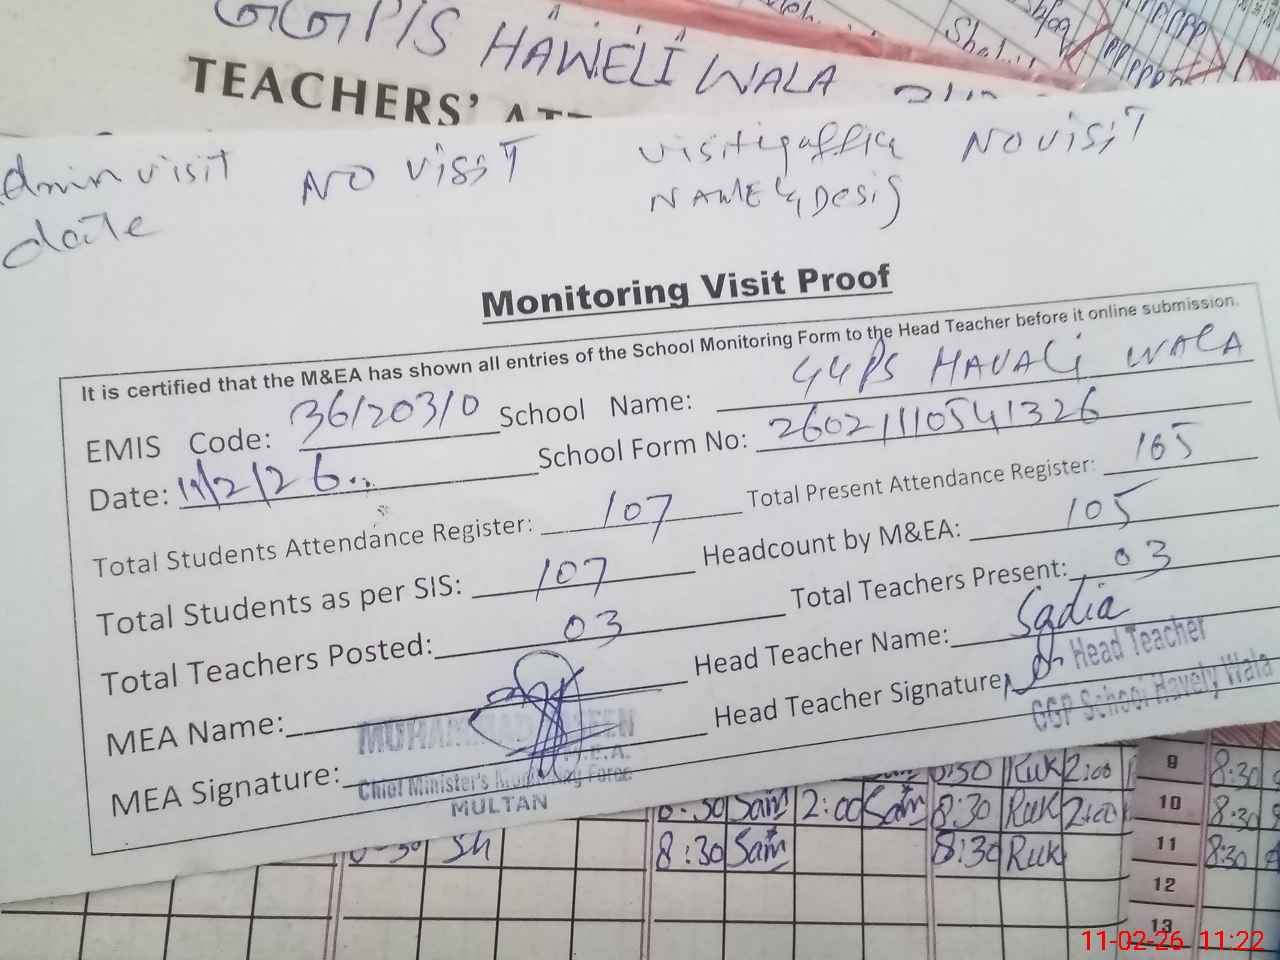 GGPS HAWELI WALA
TEACHERS'
dmin visit NO VISIT visiting office NO VISIT
date NAME & Desig
Monitoring Visit Proof
It is certified that the M&EA has shown all entries of the School Monitoring Form to the Head Teacher before it online submission.
EMIS Code: 36120310 School Name: GGPS HAVALI WALA
Date: 11/2/26.. School Form No: 26021110541326
Total Students Attendance Register: 107 Total Present Attendance Register: 105
Total Students as per SIS: 107 Headcount by M&EA: 105
Total Teachers Posted: 03 Total Teachers Present: 03
MEA Name: Head Teacher Name: Sadia
MEA Signature: Head Teacher Signature
Head Teacher
GGP School Havely Wala
Chief Minister's Monitoring Force
MULTAN
8:30 Ruk 2:00 9 8:30
8:30 Sam 2:00 Sam 8:30 Ruk 2:00 10 8:30
8:30 Sam 8:30 Ruk 11 8:30
12
13
11-02-26 11:22